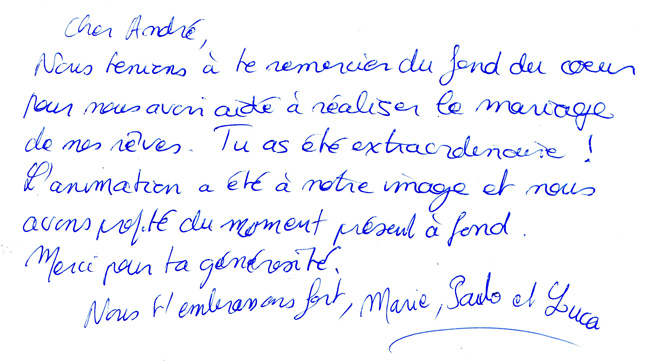 Cher André,
Nous tenions à te remercier du fond du coeur
pour nous avoir aidé à réaliser le mariage
de nos rêves. Tu as été extraordinaire !
L'animation a été à notre image et nous
avons profité du moment présent à fond.
Merci pour ta générosité.
Nous t'embrassons fort, Marie, Paulo et Luca